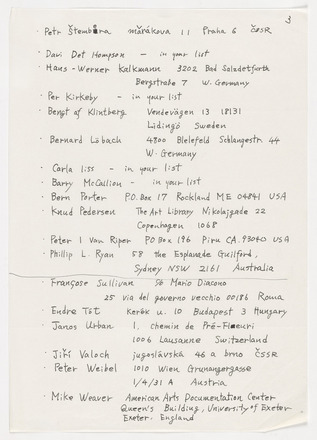 3
· Petr Štembera mařákova 11 Praha 6 ČSSR
· Davi Det Hompson — in your list
· Hans-Werner Kalkmann 3202 Bad Salzdetfurth
Bergstraße 7 W. Germany
· Per Kirkeby — in your list
· Bengt af Klintberg Vendevägen 13 18131
Lidingö Sweden
· Bernard Löbach 4800 Bielefeld Schlangestr. 44
W. Germany
· Carla liss — in your list
· Barry McCallion — in your list
· Bern Porter P.O. Box 17 Rockland ME 04841 USA
· Knud Pedersen The Art Library Nikolajgade 22
Copenhagen 1068
· Peter I Van Riper PO Box 196 Piru CA. 93040 USA
· Phillip L. Ryan 58 the Esplanade Guilford,
Sydney NSW 2161 Australia
· Françoise Sullivan c/o Mario Diacono
25 via del governo vecchio 00186 Roma
· Endre Tót Kerék u. 10 Budapest 3 Hungary
· Janos Urban 1. chemin de Pré-Fleuri
1006 Lausanne Switzerland
· Jiří Valoch jugoslávská 46 a brno ČSSR
· Peter Weibel 1010 Wien Grunangergasse
1/4/31 A Austria
· Mike Weaver American Arts Documentation Center
Queen's Building, University of Exeter
Exeter. England